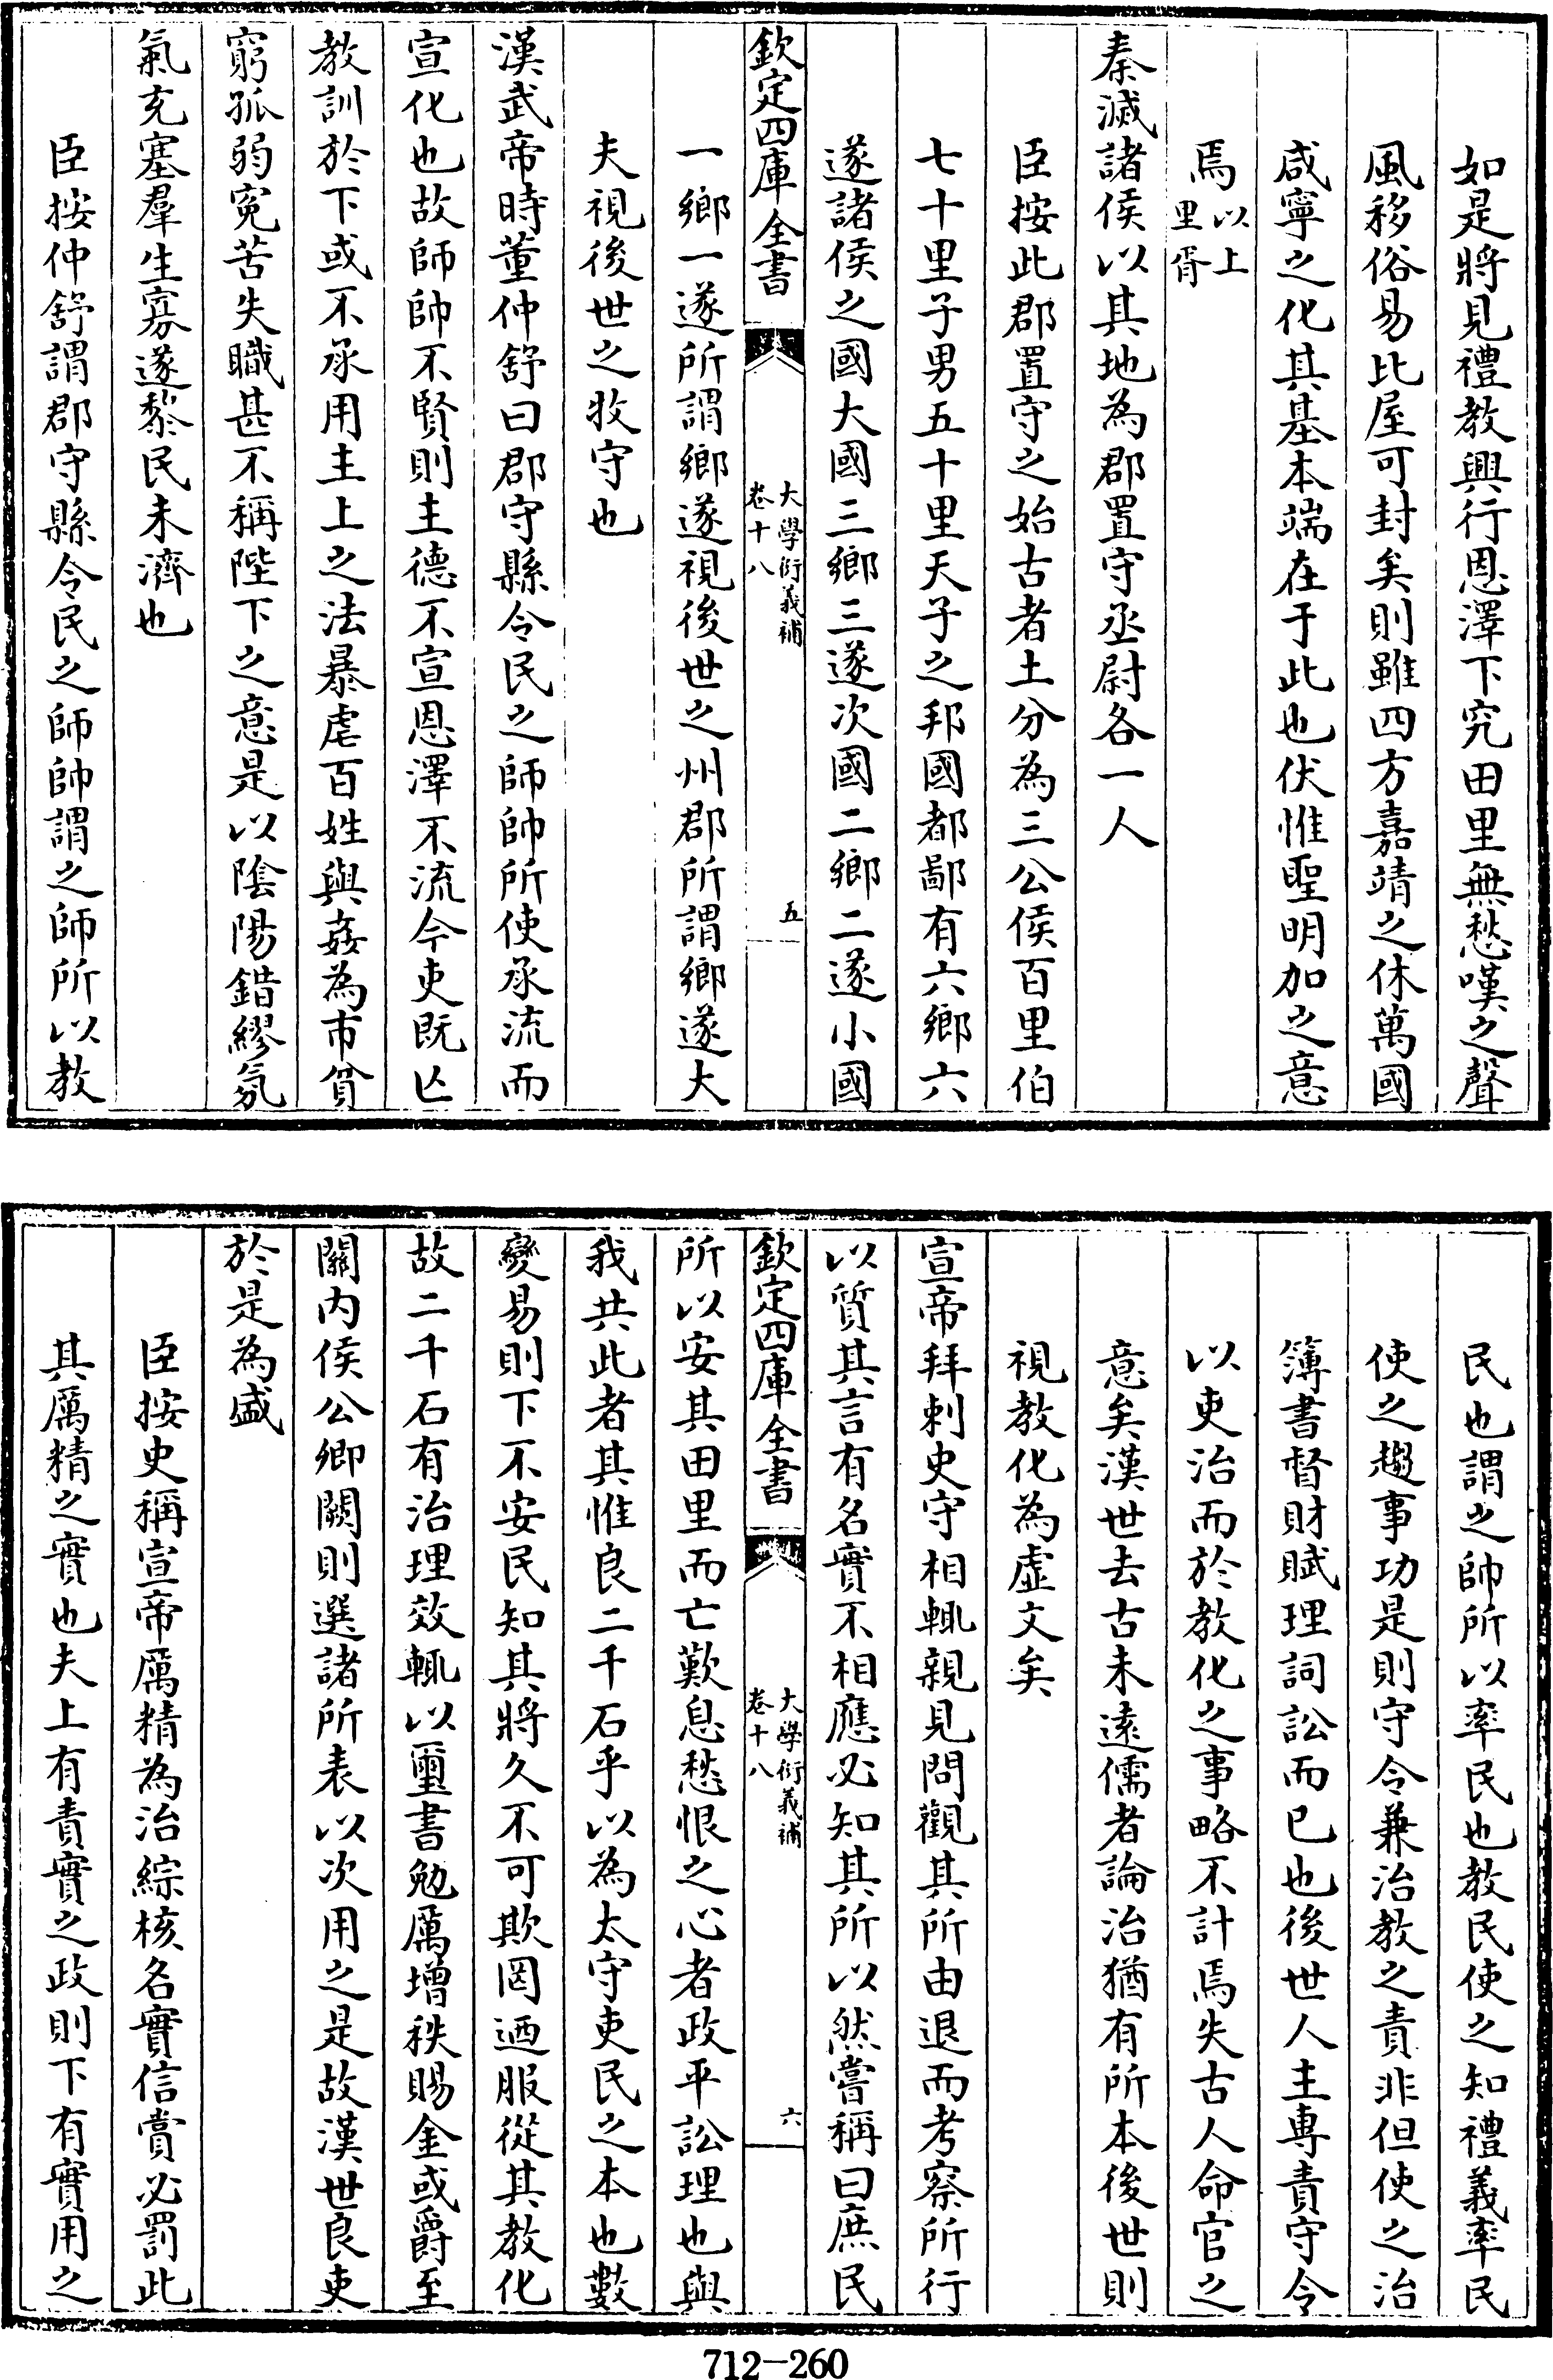 如是將見禮教興行恩澤下究田里無愁嘆之聲
風移俗易比屋可封矣則雖四方嘉靖之休萬國
咸寧之化其基本端在于此也伏惟聖明加之意
焉以上里胥
秦滅諸侯以其地為郡置守丞尉各一人
臣按此郡置守之始古者土分為三公侯百里伯
七十里子男五十里天子之邦國都鄙有六鄉六
遂諸侯之國大國三鄉三遂次國二鄉二遂小國
欽定四庫全書
大學衍義補
卷十八
五
一鄉一遂所謂鄉遂視後世之州郡所謂鄉遂大
夫視後世之牧守也
漢武帝時董仲舒曰郡守縣令民之師帥所使承流而
宣化也故師帥不賢則主德不宣恩澤不流今吏既亾
教訓於下或不承用主上之法暴虐百姓與姦為市貧
窮孤弱寃苦失職甚不稱陛下之意是以陰陽錯繆氛
氣充塞羣生寡遂黎民未濟也
臣按仲舒謂郡守縣令民之師帥謂之師所以教
民也謂之帥所以率民也教民使之知禮義率民
使之趨事功是則守令兼治教之責非但使之治
簿書督財賦理詞訟而已也後世人主專責守令
以吏治而於教化之事略不計焉失古人命官之
意矣漢世去古未遠儒者論治猶有所本後世則
視教化為虛文矣
宣帝拜刺史守相輒親見問觀其所由退而考察所行
以質其言有名實不相應必知其所以然嘗稱曰庶民
欽定四庫全書
大學衍義補
卷十八
六
所以安其田里而亡歎息愁恨之心者政平訟理也與
我共此者其惟良二千石乎以為太守吏民之本也數
變易則下不安民知其將久不可欺罔迺服從其教化
故二千石有治理效輒以璽書勉厲增秩賜金或爵至
關內侯公卿闕則選諸所表以次用之是故漢世良吏
於是為盛
臣按史稱宣帝厲精為治綜核名實信賞必罰此
其厲精之實也夫上有責實之政則下有實用之
712-260